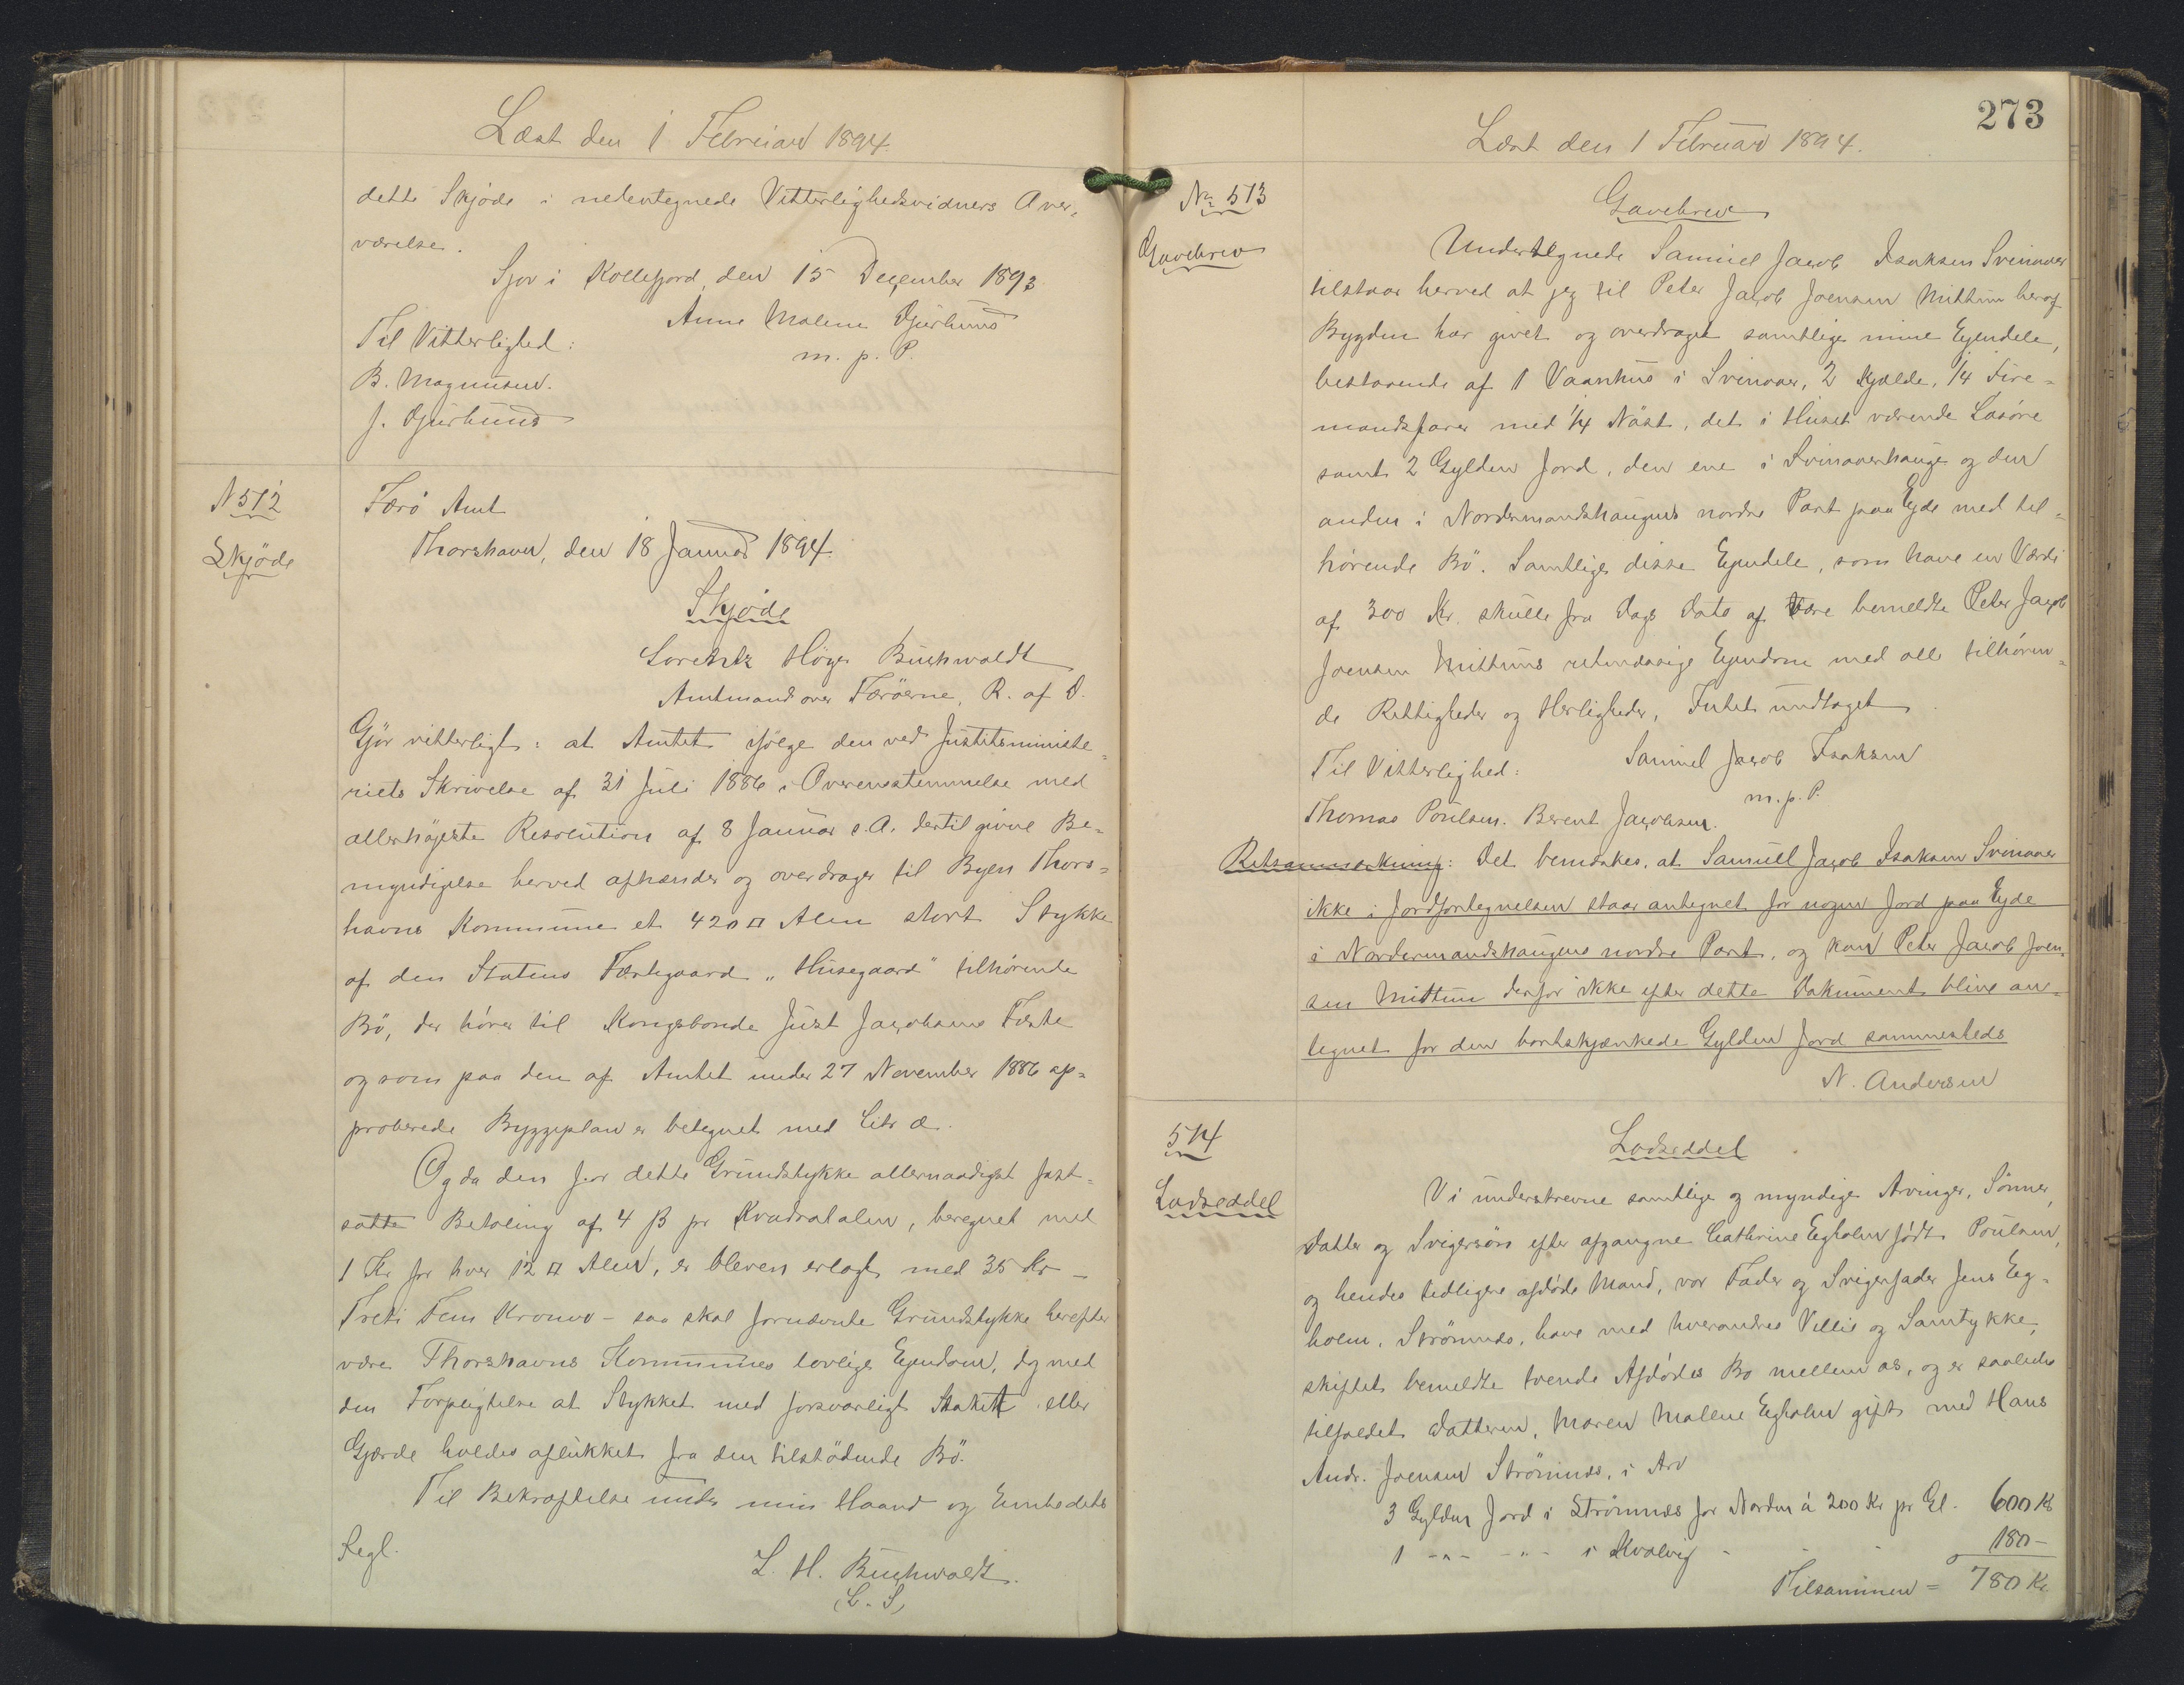 Læst den 1 Februar 1894
dette Skjøde i nedentegnede Vitterlighedsvidners Over-
værelse.
Sjov i Kollefjord, den 15 December 1893
Anne Malene Djurhuus
Til Vitterlighed:
m. p. P.
B. Magnusen.
J. Djurhuus
N 512
Skjöde
Færö Amt
Thorshavn, den 18 Januar 1894.
Skjöde
Lorentz Höyer Buchwaldt
Amtmand over Færöerne, R. af D.
Gjör vitterligt: at Amtet ifölge den ved Justitsministe-
riets Skrivelse af 31 Juli 1886 i Overensstemmelse med
allerhöjeste Resolution af 8 Januar s.A. dertil givne Be-
myndigelse herved afhænder og overdrager til Byen Thors-
havns Kommune et 420 □ Alen stort Stykke
af den Statens Fæstegaard "Husegaard" tilhörende
Bö, der hörer til Kongsbonde Just Jacobsens Fæste
og som paa den af Amtet under 27 November 1886 ap-
proberede Byggeplan er betegnet med Litr æ.
Og da den for dette Grundstykke allernaadigst fast-
satte Betaling af 4 β pr Kvadratalen, beregnet med
1 Kr for hver 12 □ Alen, er bleven erlagt med 35 Kr -
Treti Fem Kroner - saa skal fornævnte Grundstykke herefter
være Thorshavns Kommunes lovlige Ejendom, dog med
den Forpligtelse at Stykket med forsvarligt Stakit eller
Gjærde holdes aflukket fra den tilstödende Bö.
Til Bekræftelse under min Haand og Embedets
Segl.
L. H. Buchwaldt.
(L. S)
273
Læst den 1 Februar 1894.
No 513
Gavebrev
Gavebrev
Undertegnede Samuel Jacob Isaksen Svinaaer
tilstaar herved at jeg til Peter Jacob Joensen Mittun heraf
Bygden har givet og overdraget samtlige mine Ejendele,
bestaaende af 1 Vaanhus i Svinaaer, 2 Kjælde, 1/4 Fire-
mandsfarer med 1/4 Näst, det i Huset værende Lösöre
samt 2 Gylden Jord, den ene i Svinaaerhauge og den
anden i Nordermandshaugens nordre Part paa Eyde med til-
hörende Bö. Samtlige disse Ejendele, som have en Værdi
af 300 Kr. skulle fra Dags Dato af være bemeldte Peter Jacob
Joensen Mittuns retmæssige Ejendom med alle tilhören-
de Rettigheder og Herligheder, Intet undtaget
Samuel Jacob Isaksen
Til Vitterlighed:
m. p. P.
Thomas Poulsen. Berent Jacobsen.
Retsanmærkning: Det bemærkes, at Samuel Jacob Isaksen Svinaaer
ikke i Jordfortegnelsen staar antegnet for nogen Jord paa Eyde
i Nordermandshaugens nordre Part, og kan Peter Jacob Joen-
sen Mittun derfor ikke efter dette Dokument blive an-
tegnet for den bortskjænkede Gylden Jord sammesteds
N. Andersen
514
Lodseddel
Lodseddel
Vi underskrevne samtlige og myndige Arvinger, Sönner,
Datter og Svigersön efter afgangne Cathrine Egholm födt Poulsen,
og hendes tidligere afdöde Mand, vor Fader og Svigerfader Jens Eg-
holm, Strömnæs, have med hverandres Villie og Samtykke,
skiftet bemeldte tvende Afdödes Bo mellem os, og er saaledes
tilfaldet Datteren, Maren Malene Egholm gift med Hans
Andr. Joensen Strömnæs, i Arv
3 Gylden Jord i Strömnæs for Norden á 200 Kr pr Gl. 600 Kr
1 -"- -"- i Kvalvig - - - 180 -
Tilsammen = 780 Kr